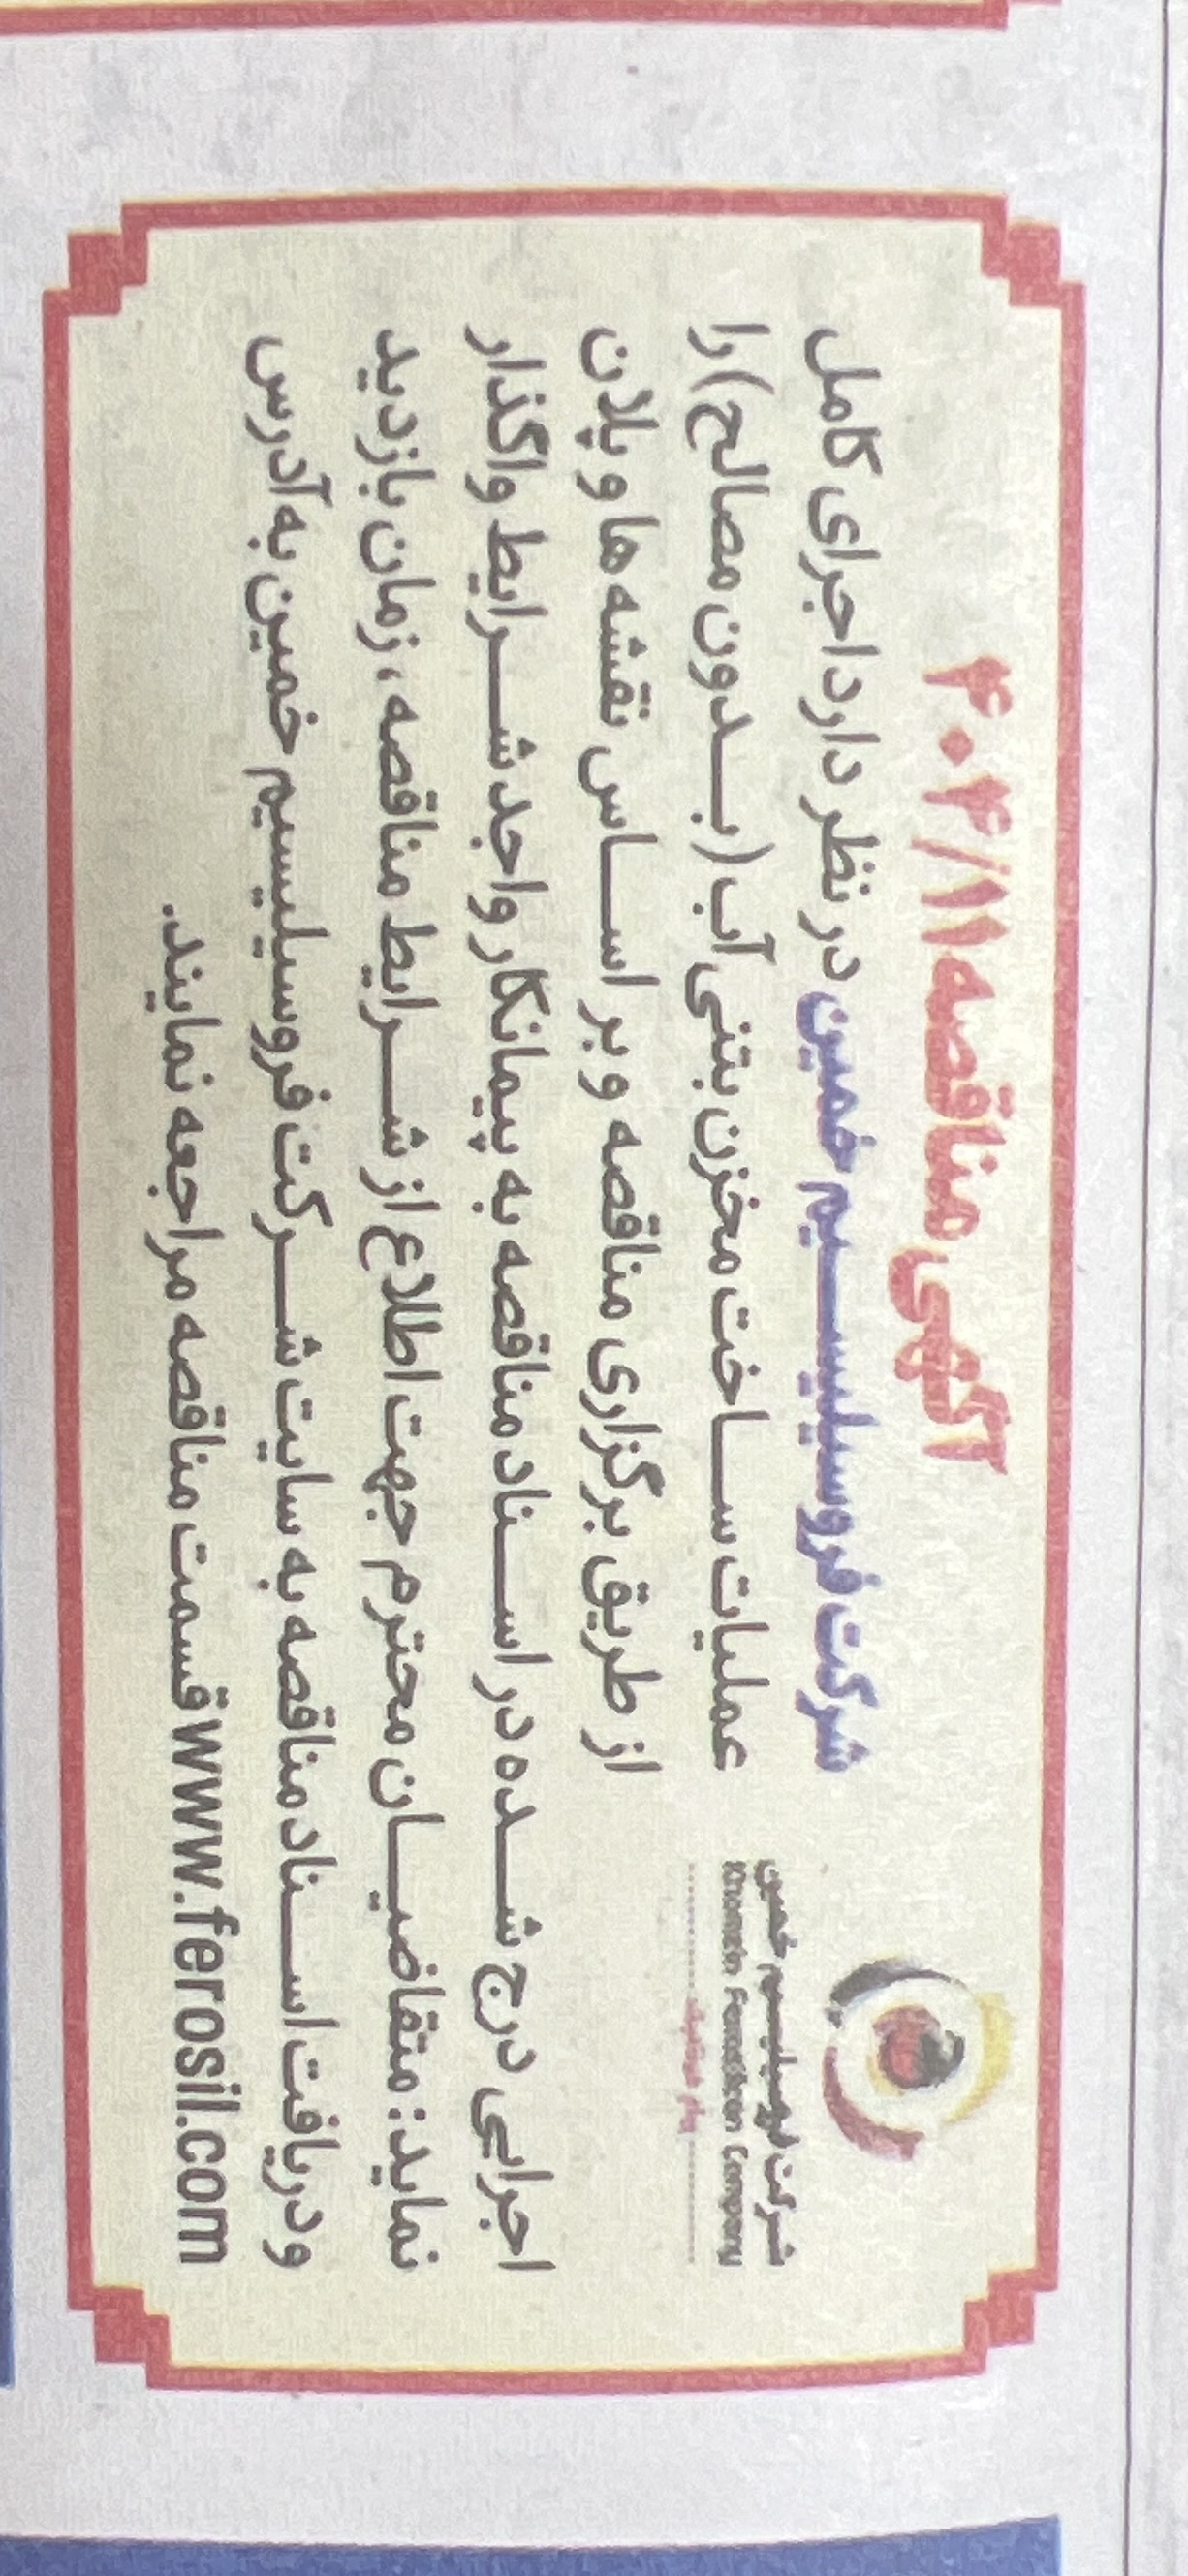 آگهی مناقصه ۴۰۴/۱۱
شرکت فروسیلیسیم خمین در نظر دارد اجرای کامل
عملیات ساخت مخزن بتنی آب (بدون مصالح) را
از طریق برگزاری مناقصه و بر اساس نقشه ها و پلان
اجرایی درج شده در اسناد مناقصه به پیمانکار واجد شرایط واگذار
نماید: متقاضیان محترم جهت اطلاع از شرایط مناقصه، زمان بازدید
و دریافت اسناد مناقصه به سایت شرکت فروسیلیسیم خمین به آدرس
www.ferosil.com قسمت مناقصه مراجعه نمایند.
شرکت فروسیلیسیم خمین
Khomein Ferrosilicon Company